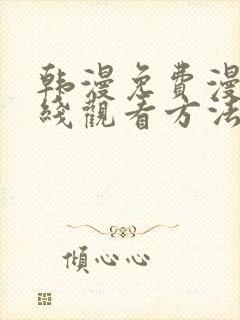 韩漫免費漫
綫觀看方法
傾心心